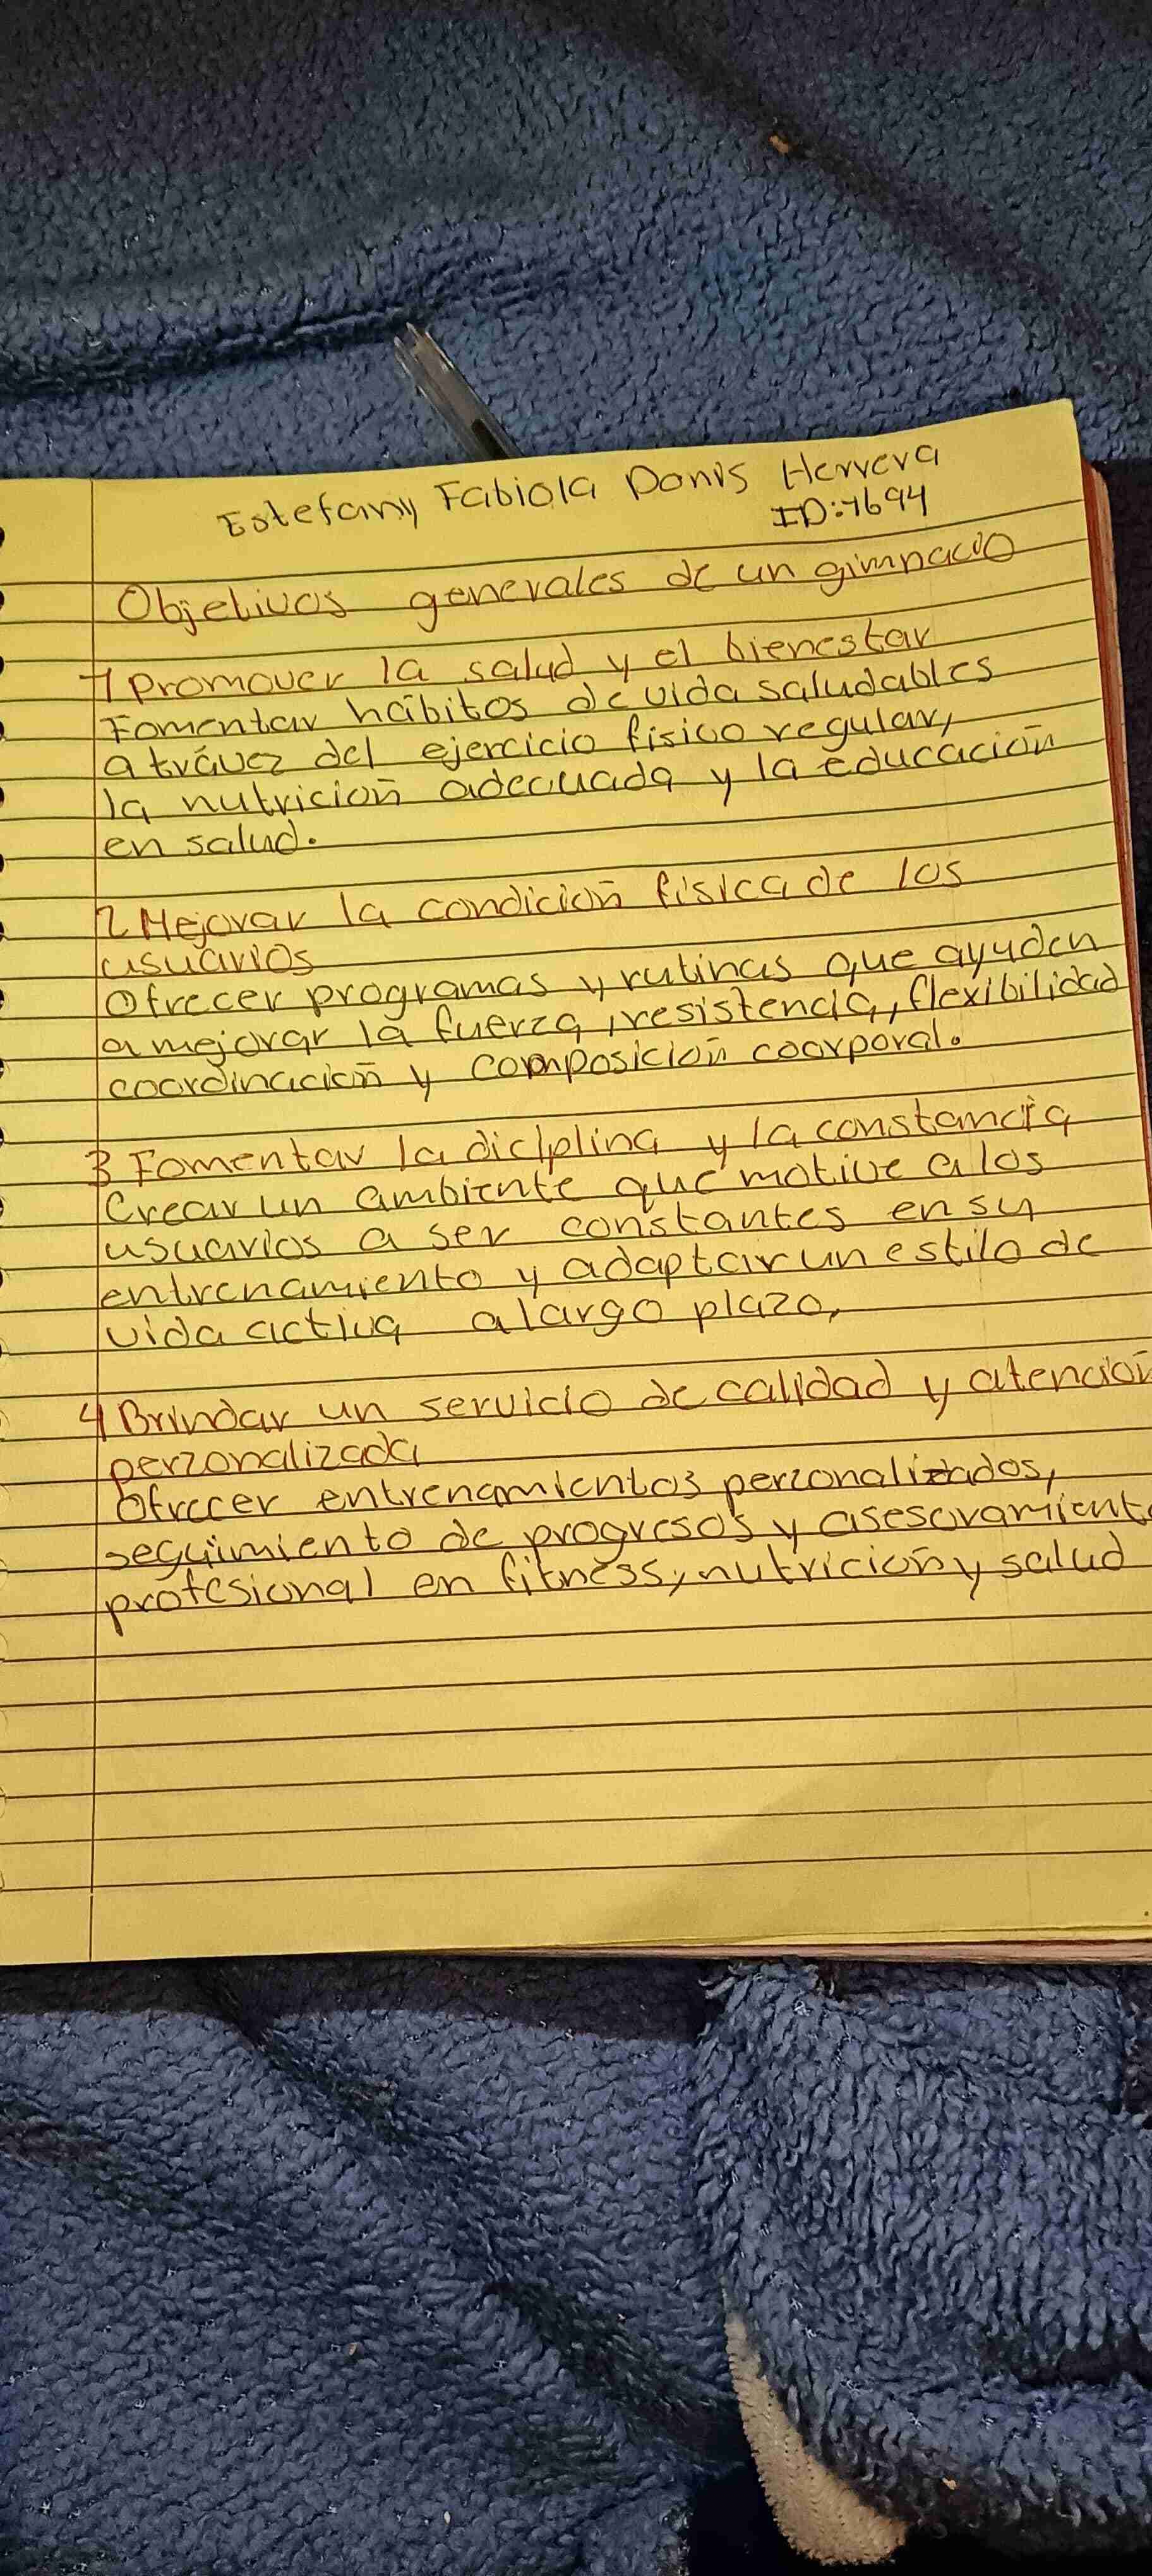 Estefany Fabiola Donis Herrera
ID:7694
Objetivos generales de un gimnacio
1 Promover la salud y el bienestar
Fomentar hábitos de vida saludables
a trávez del ejercicio físico regular,
la nutrición adecuada y la educación
en salud.
2 Mejorar la condición física de los
usuarios
Ofrecer programas y rutinas que ayuden
a mejorar la fuerza, resistencia, flexibilidad
coordinación y composición coorporal.
3 Fomentar la diciplina y la constancia
Crear un ambiente que motive a los
usuarios a ser constantes en su
entrenamiento y adaptar un estilo de
vida activa a largo plazo,
4 Brindar un servicio de calidad y atención
perzonalizada
Ofrecer entrenamientos perzonalizados,
seguimiento de progresos y asesoramiento
profesional en fitness, nutrición y salud